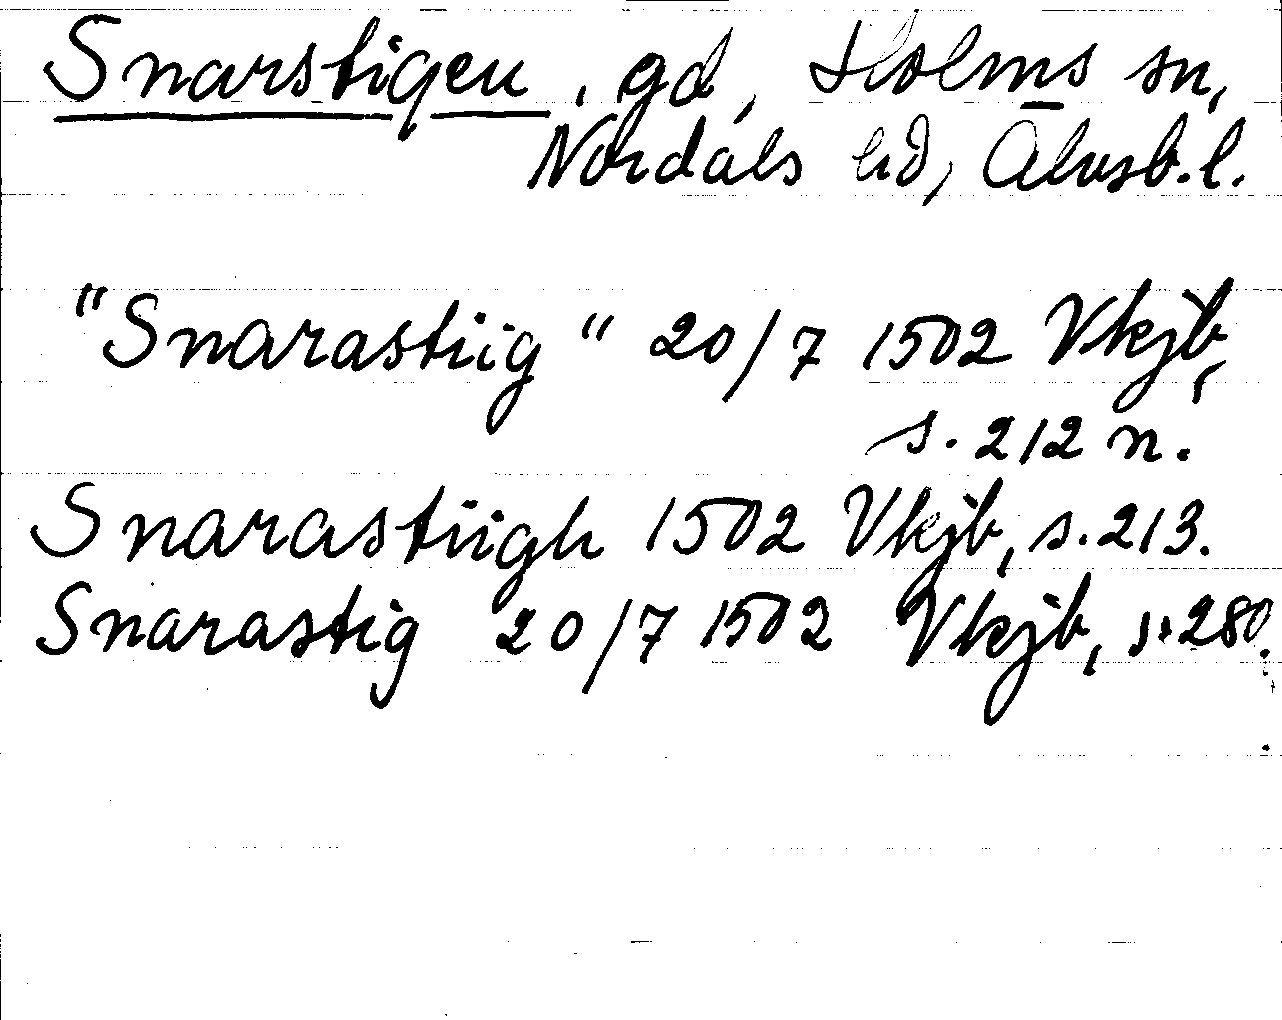 Snarstigen, gd, Holms sn,
Nordals hd, Älvsb. l.
"Snarastiig" 20/7 1502 Vkjb,
s. 212 n.
Snarastiigh 1502 Vkjb, s. 213.
Snarastig 20/7 1502 Vkjb, s. 280.